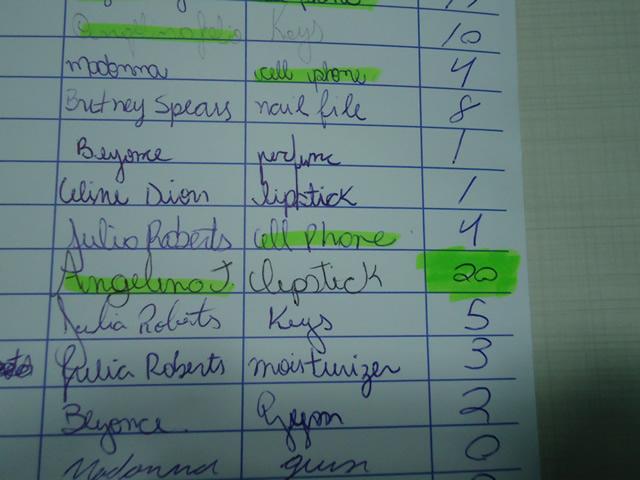 phone
Angelina Jolie Keys 10
madonna cell phone 4
Britney Spears nail file 8
Beyonce perfume 1
Celine Dion lipstick 1
Julia Roberts cell phone 4
Angelina J. lipstick 20
Julia Roberts Keys 5
Julia Roberts moisturizer 3
Beyonce 2
Madonna gum 0